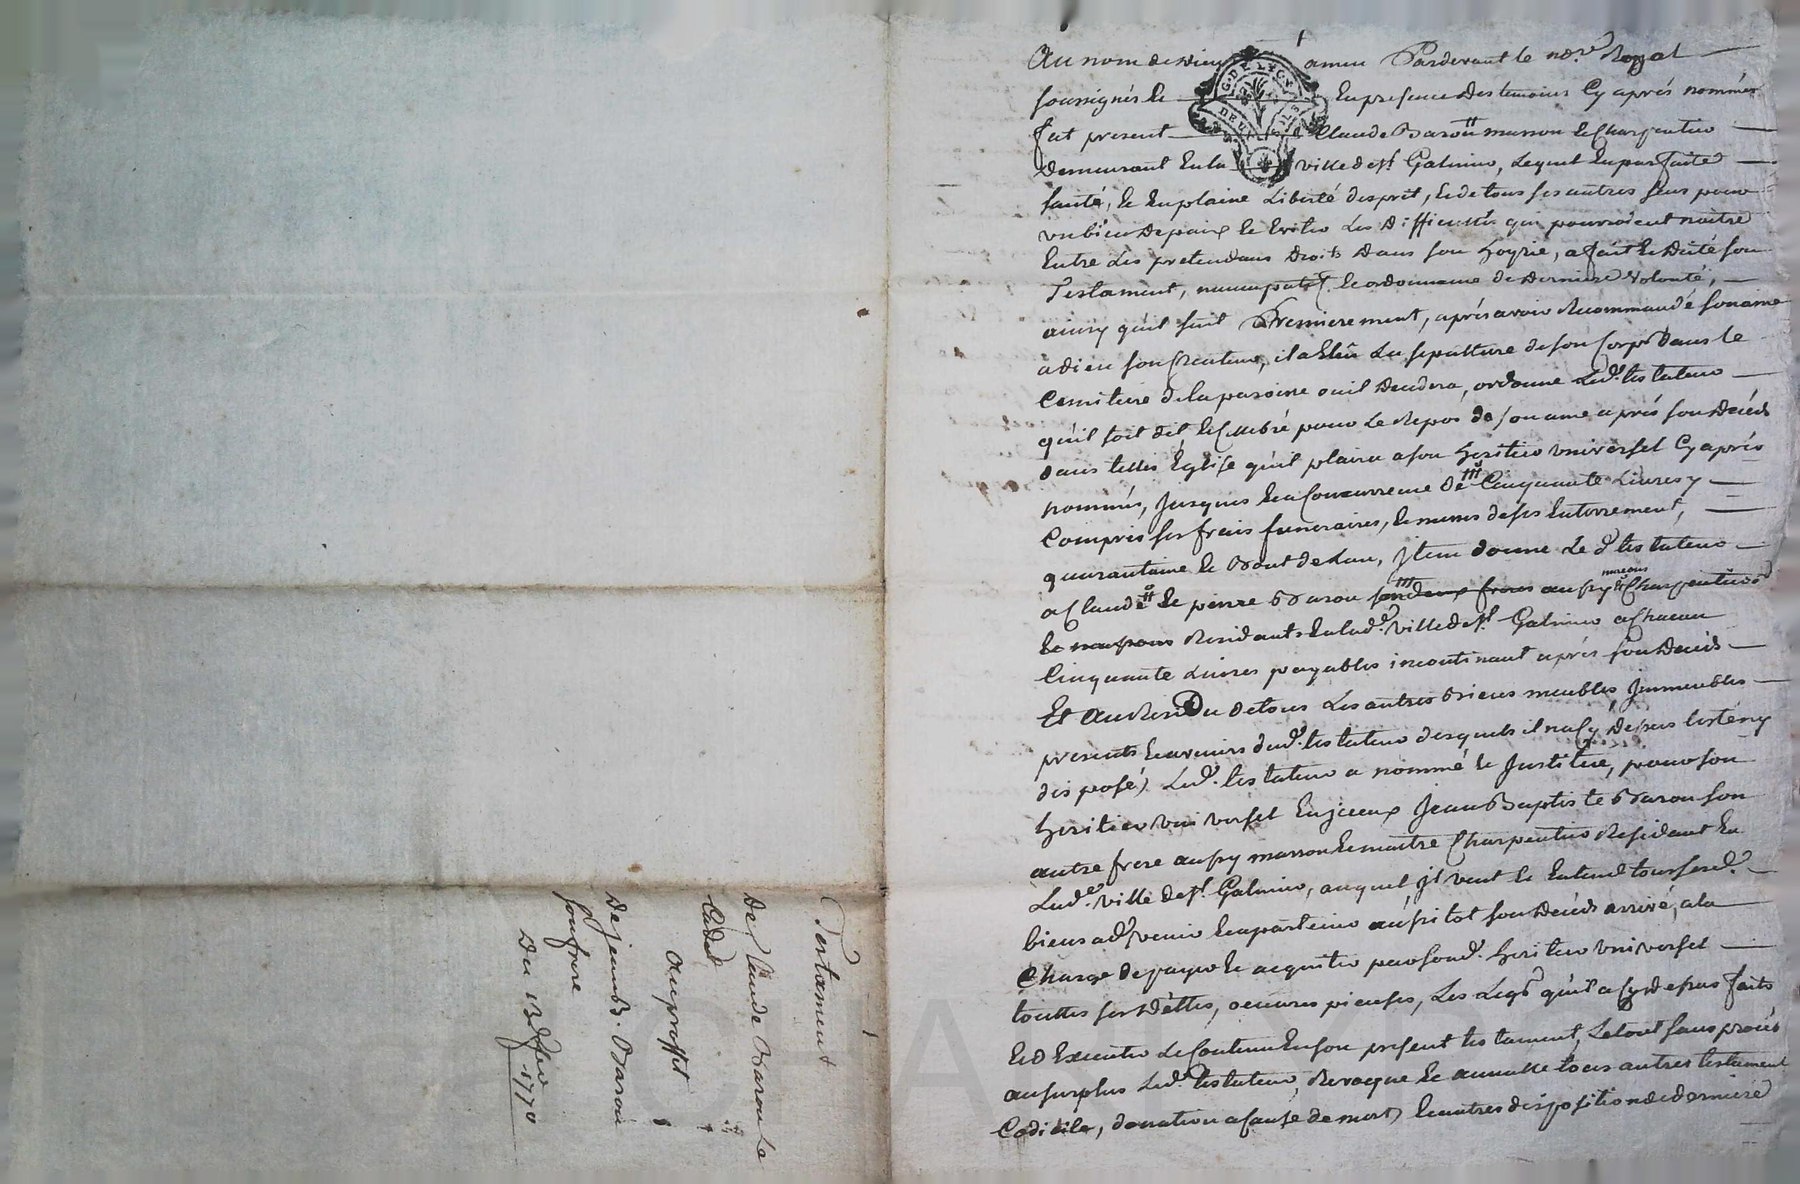 Au nom de Dieu amen Pardevant le no.re Royal
soussignés et En presence des temoins Cy aprés nommés
fut present Claude Baron masson et Charpentier
demeurant En la ville de S.t Galmier, Lequel En parfaite
santé, et En plaine Liberté desprit, et de tous ses autres sens pour
un bien de paix et Eviter Les Difficultés qui pourroient naitre
Entre Les pretendans droits dans son hoyrie, a fait et dicté son
Testament, nuncupatif et ordonnance de Derniere Volonté,
ainsy qu'il suit Premierement, aprés avoir Recommandé son ame
a dieu son Createur, il a Eleu La sepulture de son Corps Dans le
Cemitiere de la paroisse ou il decedera, ordonne Led. testateur
qu'il soit dit et Celebré pour Le Repos de son ame aprés son decés
dans telles Église qu'il plaira a son heritier universel Cy aprés
nommés, Jusques En Concurrence de Cinquante Livres y
Compris ses frais funeraires, et messes de ses Enterrement,
quarantaine et Bout de Lan, Jtem donne Le d. testateur
a Claude et pierre Baron ses deux freres aussy massons & Charpentiers
et massons Residants En lad.e ville de S.t Galmier a Chacun
Cinquante Livres payables incontinant aprés son decés
Et Au Residu de tous Les autres Biens meubles, Jmmeubles
presents et avenirs dud. testateur desquels il na Cy dessus testé ny
disposé, Led. testateur a nommé et Justitué, pour son
heritier universel En jceux Jean Baptiste Baron son
autre frere aussy masson et maitre Charpentier Residant En
Lad.e ville de S.t Galmier, auquel Jl veut et Entend tous sesd.
biens advenir et apartenir aussitot son decés arrivé, a la
Charge de payer et acquitter par sond. heritier universel
touttes ses dettes, oeuvres pieuses, Les Legs qu'il a Cy dessus faits
Et d'Executer Le Contenu En son present testament, Le tout sans procés
au surplus Led. testateur, Revoque et annulle tous autres testament
Codicile, donation a Cause de mort, et autres disposition de derniere
G. DE LYON
DEUX SOLS
Testament
De Claude Baron Le
Cadet
Au proffit
De jean B. Baron
son frere
Du 13 1770